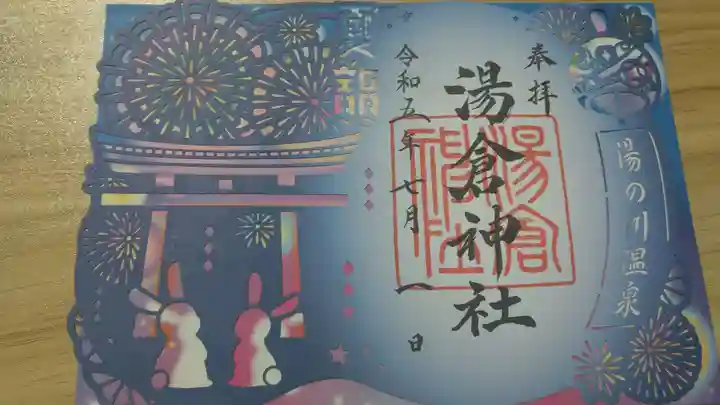 奉拝
湯倉神社
湯倉
神社
令和五年七月一日
夏詣
湯の川温泉